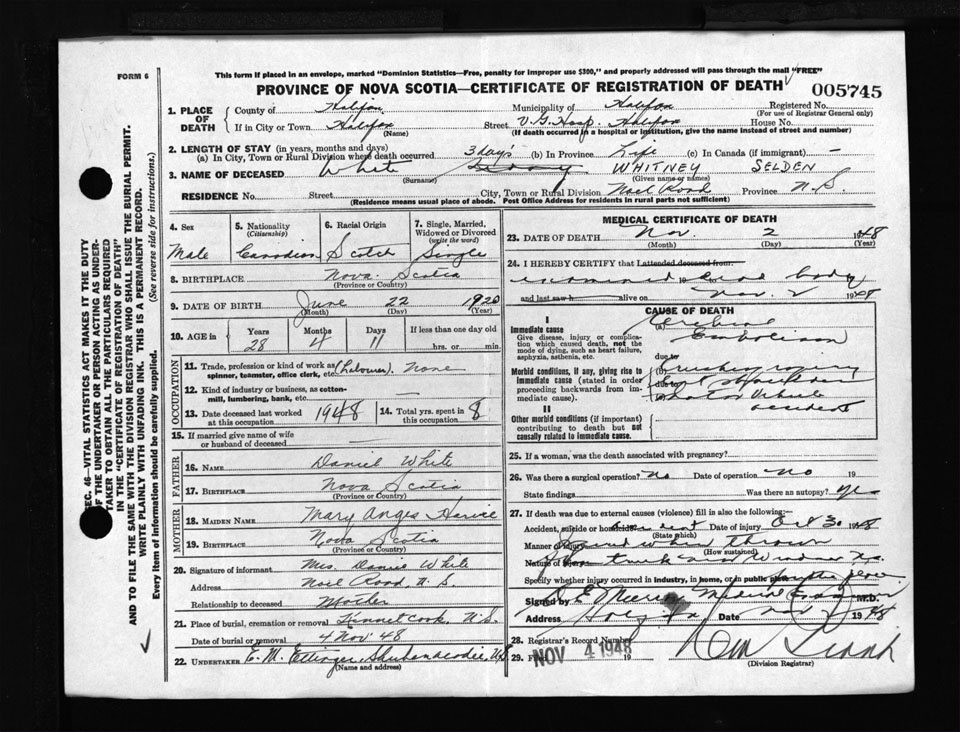 FORM 6
This form if placed in an envelope, marked "Dominion Statistics—Free, penalty for improper use $300," and properly addressed will pass through the mail "FREE"
PROVINCE OF NOVA SCOTIA—CERTIFICATE OF REGISTRATION OF DEATH
005745
1. PLACE OF DEATH
County of Halifax Municipality of Halifax Registered No.
(For use of Registrar General only)
If in City or Town Halifax Street V.G. Hosp. Halifax House No.
(Name) (If death occurred in a hospital or institution, give the name instead of street and number)
2. LENGTH OF STAY (in years, months and days)
(a) In City, Town or Rural Division where death occurred 3 days (b) In Province Life (c) In Canada (if immigrant) —
3. NAME OF DECEASED White WHITNEY SELDEN
(Surname) (Given name or names)
RESIDENCE No. Street City, Town or Rural Division Noel Road Province N.S.
(Residence means usual place of abode. Post Office Address for residents in rural parts not sufficient)
4. Sex Male
5. Nationality (Citizenship) Canadian
6. Racial Origin Scotch
7. Single, Married, Widowed or Divorced (write the word) Single
8. BIRTHPLACE Nova Scotia
(Province or Country)
9. DATE OF BIRTH June 22 1920
(Month) (Day) (Year)
10. AGE in Years Months Days If less than one day old
28 4 11 hrs. or min.
OCCUPATION
11. Trade, profession or kind of work as spinner, teamster, office clerk, etc. (Labourer) None
12. Kind of industry or business, as cotton-mill, lumbering, bank, etc. —
13. Date deceased last worked at this occupation 1948
14. Total yrs. spent in 8
15. If married give name of wife or husband of deceased
FATHER
16. NAME Daniel White
17. BIRTHPLACE Nova Scotia
(Province or Country)
MOTHER
18. MAIDEN NAME Mary
19. BIRTHPLACE Nova Scotia
(Province or Country)
20. Signature of informant Mrs. Daniel White
Address Noel Road N.S.
Relationship to deceased Mother
21. Place of burial, cremation or removal Kennetcook, N.S.
Date of burial or removal 4 Nov '48
22. UNDERTAKER E. M. Ettinger, Shubenacadie, N.S.
(Name and address)
MEDICAL CERTIFICATE OF DEATH
23. DATE OF DEATH Nov. 2 1948
(Month) (Day) (Year)
24. I HEREBY CERTIFY that I attended deceased from
examined body
and last saw h alive on Nov. 2 1948
CAUSE OF DEATH
I
Immediate cause
Give disease, injury or complication which caused death, not the mode of dying, such as heart failure, asphyxia, asthenia, etc.
(a) Cerebral Embolism
due to
Morbid conditions, if any, giving rise to immediate cause (stated in order proceeding backwards from immediate cause).
Crushing injury
shoulder
Motor Vehicle accident
II
Other morbid conditions (if important) contributing to death but not causally related to immediate cause.
25. If a woman, was the death associated with pregnancy?
26. Was there a surgical operation? No Date of operation No 19
State findings Was there an autopsy? yes
27. If death was due to external causes (violence) fill in also the following:
Accident, suicide or homicide Accident Date of injury Oct 30 1948
(State which)
Manner of injury when thrown
(How sustained)
Nature of injury from truck Windsor
Specify whether injury occurred in industry, in home, or in public place
Signed by Medical Examiner M.D.
Address Date Nov 2 1948
28. Registrar's Record Number
29. NOV 4 1948 19
(Division Registrar)
SEC. 46—VITAL STATISTICS ACT MAKES IT THE DUTY
OF THE UNDERTAKER OR PERSON ACTING AS UNDER-
TAKER TO OBTAIN ALL THE PARTICULARS REQUIRED
IN THE "CERTIFICATE OF REGISTRATION OF DEATH"
AND TO FILE THE SAME WITH THE DIVISION REGISTRAR WHO SHALL ISSUE THE BURIAL PERMIT.
WRITE PLAINLY WITH UNFADING INK. THIS IS A PERMANENT RECORD.
Every item of information should be carefully supplied. (See reverse side for instructions.)